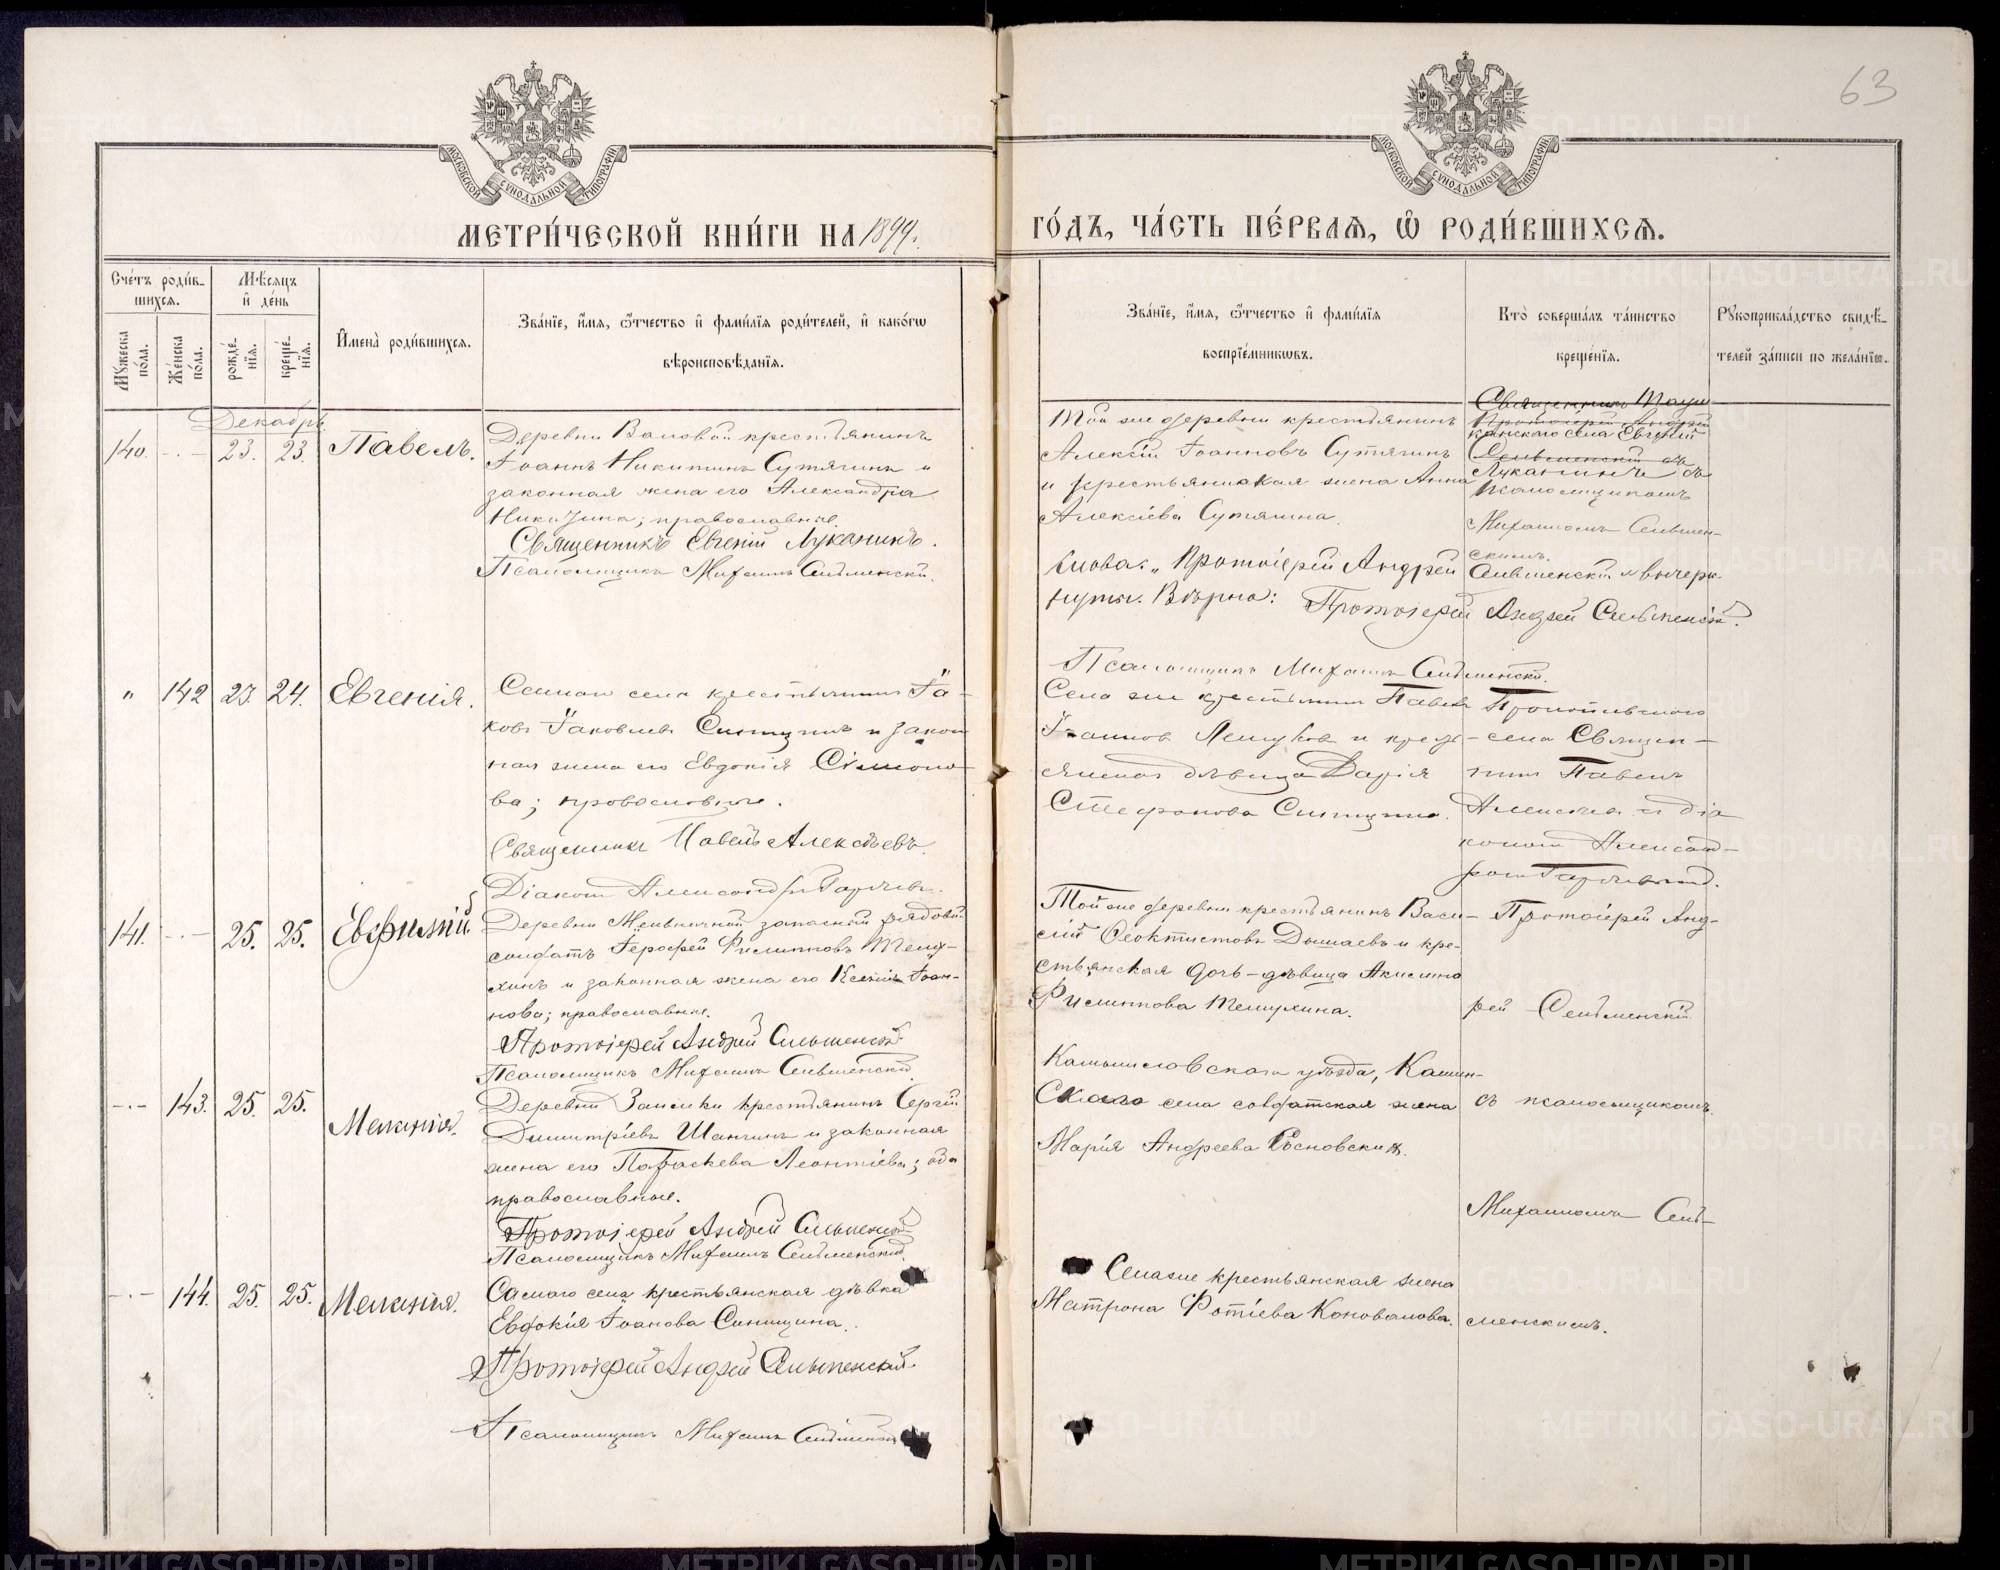 63
МОСКОВСКОЙ СѴНОДАЛЬНОЙ ТИПОГРАФИИ
МОСКОВСКОЙ СѴНОДАЛЬНОЙ ТИПОГРАФИИ
МЕТРИ́ЧЕСКОЙ КНИ́ГИ НА 1899 г.
ГО́ДЪ, ЧА́СТЬ ПЕ́РВАѦ, Ѡ҆ РОДИ́ВШИХСѦ.
Сче́тъ роди́в-
шихсѧ.
Мѣ́сѧцъ
и҆ де́нь
Мꙋ́жеска по́ла.
Же́нска по́ла.
рожде́нїѧ.
креще́нїѧ.
И҆мена̀ роди́вшихсѧ.
Зва́нїе, и҆́мѧ, ѻ҆́тчество и҆ фами́лїѧ роди́телей, и҆ како́гѡ
вѣроисповѣ́данїѧ.
Зва́нїе, и҆́мѧ, ѻ҆́тчество и҆ фами́лїѧ
воспрїе́мникѡвъ.
Кто̀ соверша́лъ та́инство
креще́нїѧ.
Рꙋкоприкла́дство свидѣ́-
телей за́писи по жела́нїю.
Декабрь
140. -·- 23. 23. Павелъ.
Деревни Валовой крестьянинъ
Іоаннъ Никитинъ Сутягинъ и
законная жена его Александра
Никитина; православные.
Священникъ Евгеній Луканинъ.
Псаломщикъ Михаилъ Сельменскій.
Той же деревни крестьянинъ
Алексій Іоанновъ Сутягинъ
и крестьянская жена Анна
Алексіева Сутягина.
Священникъ
Протоіерей Андрей
канскаго села Евгеній
Сельменскій съ
Луканинъ съ
псаломщикомъ
Михаиломъ Сельмен-
скимъ.
Слова: „Протоіерей Андрей Сельменскій“ вычерк-
нуты. Вѣрно: Протоіерей Андрей Сельменскій.
Псаломщикъ Михаилъ Сельменскій.
" 142 23. 24. Евгенія.
Самаго села крестьянинъ Іа-
ковъ Іаковлевъ Синицынъ и закон
ная жена его Евдокія Сімоно-
ва; православные.
Священникъ Павелъ Алексѣевъ.
Діаконъ Александръ
Села же крестьянинъ Павелъ
Іоанновъ и кресть-
янская дѣвица Дарія
Стефанова Синицына.
села Священ-
никъ Павелъ
Алексѣевъ и діа
кономъ Александ-
ромъ
141. -·- 25. 25. Евфимій
Деревни Мельничной запасный рядовой
солдатъ Іерофей Филипповъ Темух-
хинъ и законная жена его Ксенія Іоан-
нова; православные.
Протоіерей Андрей Сельменскій.
Псаломщикъ Михаилъ Сельменскій.
Той же деревни крестьянинъ Васи-
лій Ѳеоктистовъ Дышаевъ и кре-
стьянская дочь-дѣвица Акилина
Филиппова Темухина.
Протоіерей Анд-
рей Сельменскій
-·- 143. 25. 25. Меланія.
Деревни Заимки крестьянинъ Сергій
Димитріевъ Шанчинъ и законная
жена его Параскева Леонтіева; оба
православные.
Протоіерей Андрей Сельменскій
Псаломщикъ Михаилъ Сельменскій.
Камышловскаго уѣзда, Камен-
скаго села солдатская жена
Марія Андреева Сосновскихъ.
съ псаломщикомъ
Михаиломъ Сель-
-·- 144. 25. 25. Меланія.
Самаго села крестьянская дѣвка
Евдокія Іоанова Синицина.
Протоіерей Андрей Сельменскій.
Псаломщикъ Михаилъ Сельменскій
Села же крестьянская жена
Матрона Фотіева Коновалова.
менскимъ.
METRIKI.GASO-URAL.RU